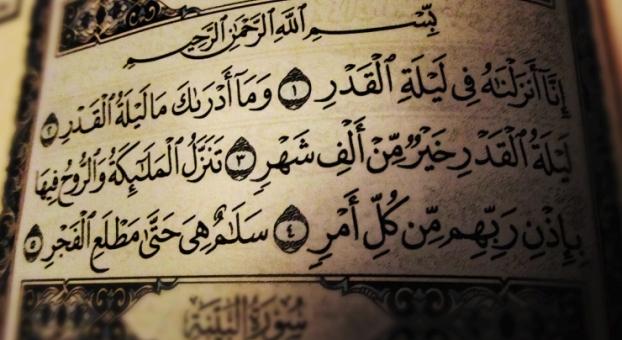 بِسْمِ ٱللَّهِ ٱلرَّحْمَـٰنِ ٱلرَّحِيمِ
إِنَّآ أَنزَلْنَـٰهُ فِى لَيْلَةِ ٱلْقَدْرِ ١ وَمَآ أَدْرَىٰكَ مَا لَيْلَةُ ٱلْقَدْرِ ٢
لَيْلَةُ ٱلْقَدْرِ خَيْرٌ مِّنْ أَلْفِ شَهْرٍ ٣ تَنَزَّلُ ٱلْمَلَـٰٓئِكَةُ وَٱلرُّوحُ فِيهَا
بِإِذْنِ رَبِّهِم مِّن كُلِّ أَمْرٍ ٤ سَلَـٰمٌ هِىَ حَتَّىٰ مَطْلَعِ ٱلْفَجْرِ ٥
سُورَةُ ٱلْبَيِّنَةِ